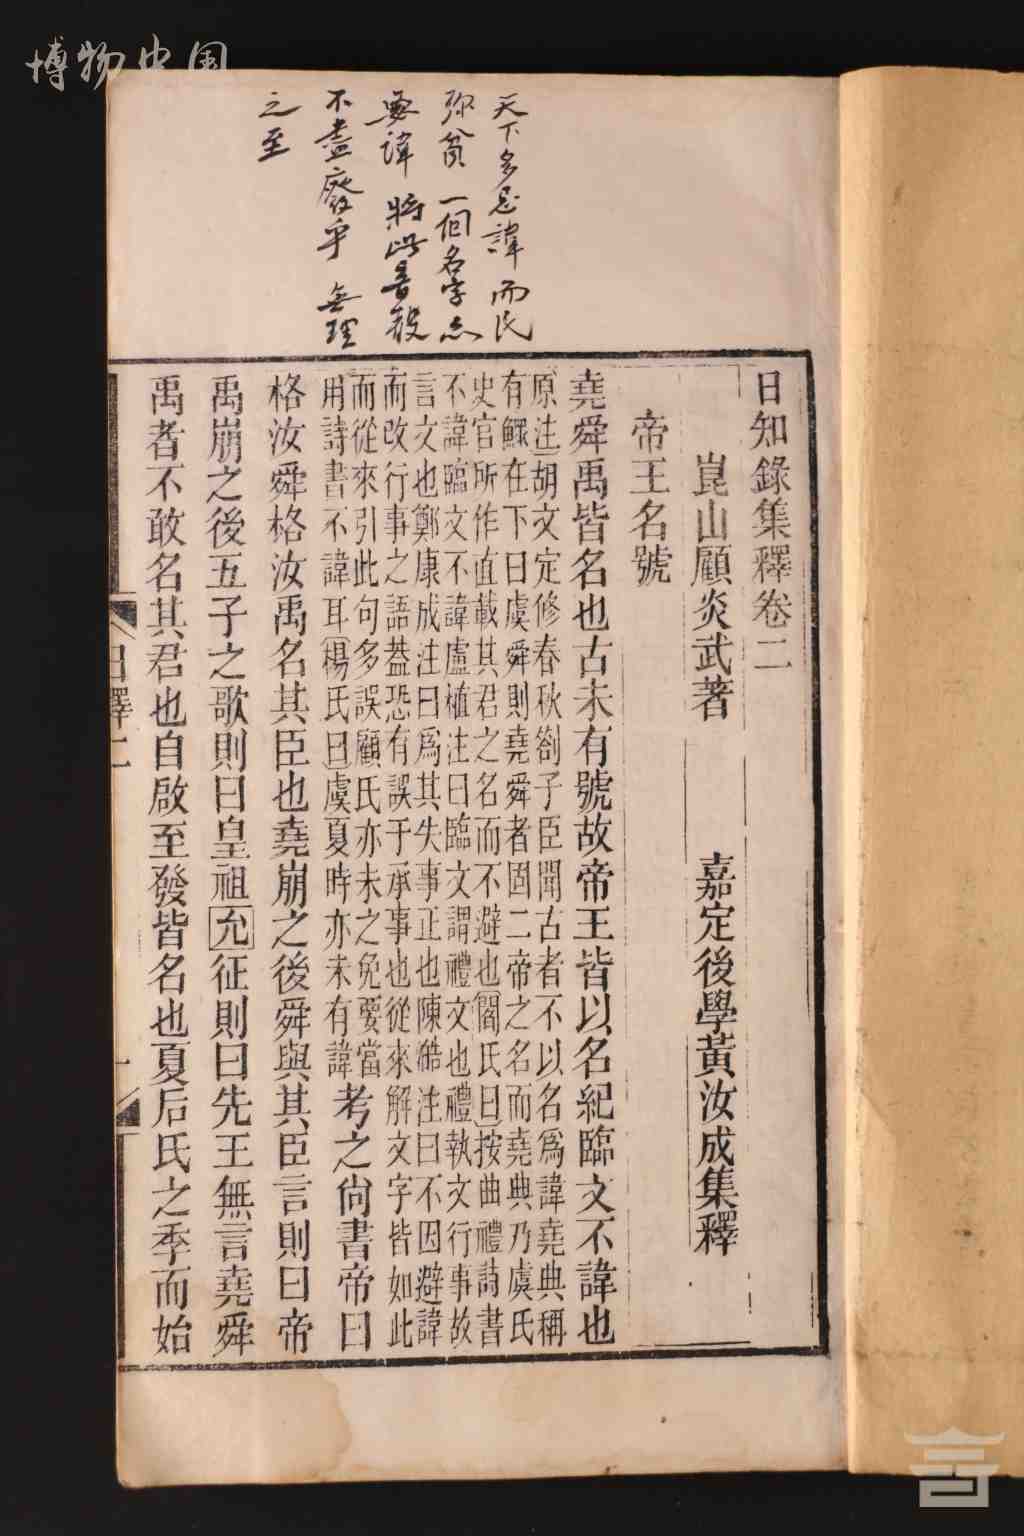 博物中国
天下多忌諱而民
弥貧 一個名字亦
要諱 將此音
不盡廢乎 無理
之至
日知錄集釋卷二
崑山顧炎武著 嘉定後學黃汝成集釋
帝王名號
堯舜禹皆名也古未有號故帝王皆以名紀臨文不諱也
原注胡文定修春秋劄子臣聞古者不以名為諱堯典稱
有鰥在下曰虞舜則堯舜者固二帝之名而堯典乃虞氏
史官所作直載其君之名而不避也閻氏曰按曲禮詩書
不諱臨文不諱盧植注曰臨文謂禮文也禮執文行事故
言文也鄭康成注曰爲其失事正也陳澔注曰不因避諱
而改行事之語葢恐有誤于承事也從來解文字皆如此
而從來引此句多誤顧氏亦未之免要當
用詩書不諱耳楊氏曰虞夏時亦未有諱
考之尙書帝曰
格汝舜格汝禹名其臣也堯崩之後舜與其臣言則曰帝
禹崩之後五子之歌則曰皇祖允征則曰先王無言堯舜
禹者不敢名其君也自啟至發皆名也夏后氏之季而始
日釋二
一